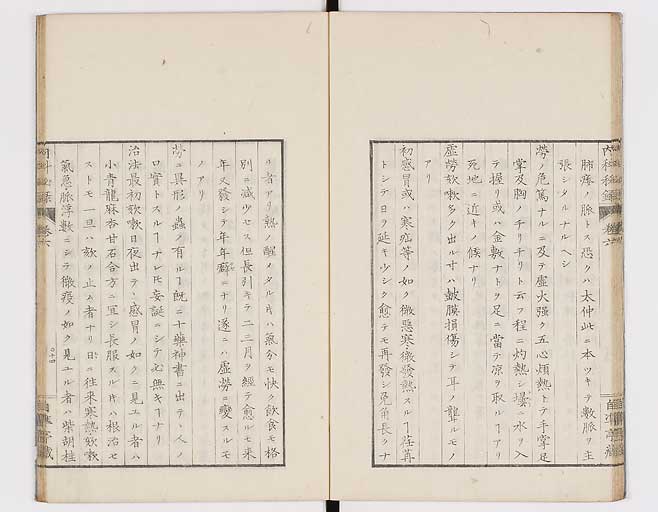 内科秘録 卷六
肺痿ノ脈トス恐クハ太仲此ニ本ツキテ數脈ヲ主
張シタルナルヘシ
勞ノ危篤ナルニ及テ虛火强ク五心煩熱トテ手掌足
掌及胸ノチリチリト云フ程ニ灼熱シ壜ニ水ヲ入
テ握リ或ハ金敷ナトヲ足ニ當テ凉ヲ取ルヿアリ
死地ニ近キノ候ナリ
虛勞欬嗽多ク出ル寸ハ皷膜損傷シテ耳ノ聾ルモノ
アリ
初感冒或ハ寒疝等ノ如ク微惡寒微發熱スルヿ荏苒
トシテ日ヲ延キ少シク愈テモ再發シ兎角長クナ
ル者アリ熱ノ醒メタル片ハ氣分モ快ク飮食モ格
別ニ减少セス但長引キテ二三月ヲ經テ愈ルモ来
年又發シテ年年癖ニナリ遂ニハ虛勞ニ變スルモ
ノアリ
勞ニ異形ノ蟲ヲ有ルヿ既ニ十藥神書ニ出テヽ人ノ
口實トスルヿナレ𪜈妄誕ニシテ必無キヿナリ
治法最初欬嗽日夜出テヽ感冒ノ如クニ見ユル者ハ
小青龍麻杏甘石合方ニ冝シ長服スル片ハ根治セ
ストモ一旦ハ欬ノ止ム者ナリ日ニ往来寒熱欬嗽
氣急脈浮數ニシテ微疫ノ如ク見ユル者ハ柴胡桂
卷六